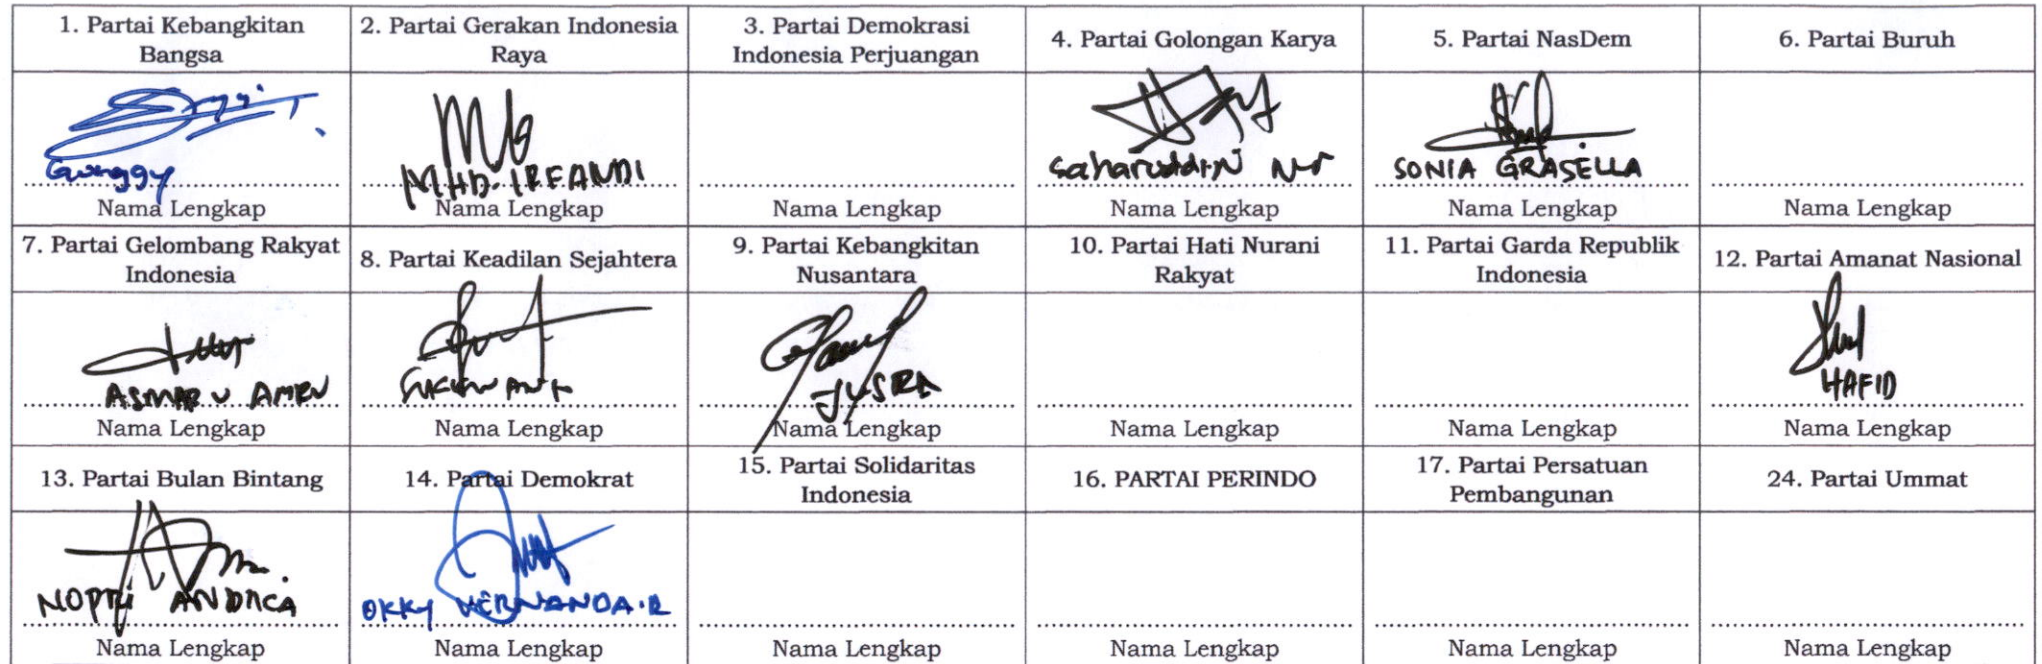 1. Partai Kebangkitan
Bangsa
2. Partai Gerakan Indonesia
Raya
3. Partai Demokrasi
Indonesia Perjuangan
4. Partai Golongan Karya
5. Partai NasDem
6. Partai Buruh
Gwnggy
MHD. IRFANDI
Saharuddin Nur
SONIA GRASELLA
Nama Lengkap
Nama Lengkap
Nama Lengkap
Nama Lengkap
Nama Lengkap
Nama Lengkap
7. Partai Gelombang Rakyat
Indonesia
8. Partai Keadilan Sejahtera
9. Partai Kebangkitan
Nusantara
10. Partai Hati Nurani
Rakyat
11. Partai Garda Republik
Indonesia
12. Partai Amanat Nasional
JUSRA
HAFID
Nama Lengkap
Nama Lengkap
Nama Lengkap
Nama Lengkap
Nama Lengkap
Nama Lengkap
13. Partai Bulan Bintang
14. Partai Demokrat
15. Partai Solidaritas
Indonesia
16. PARTAI PERINDO
17. Partai Persatuan
Pembangunan
24. Partai Ummat
NOPRI ANDRICA
OKKY VERNANDA.R
Nama Lengkap
Nama Lengkap
Nama Lengkap
Nama Lengkap
Nama Lengkap
Nama Lengkap